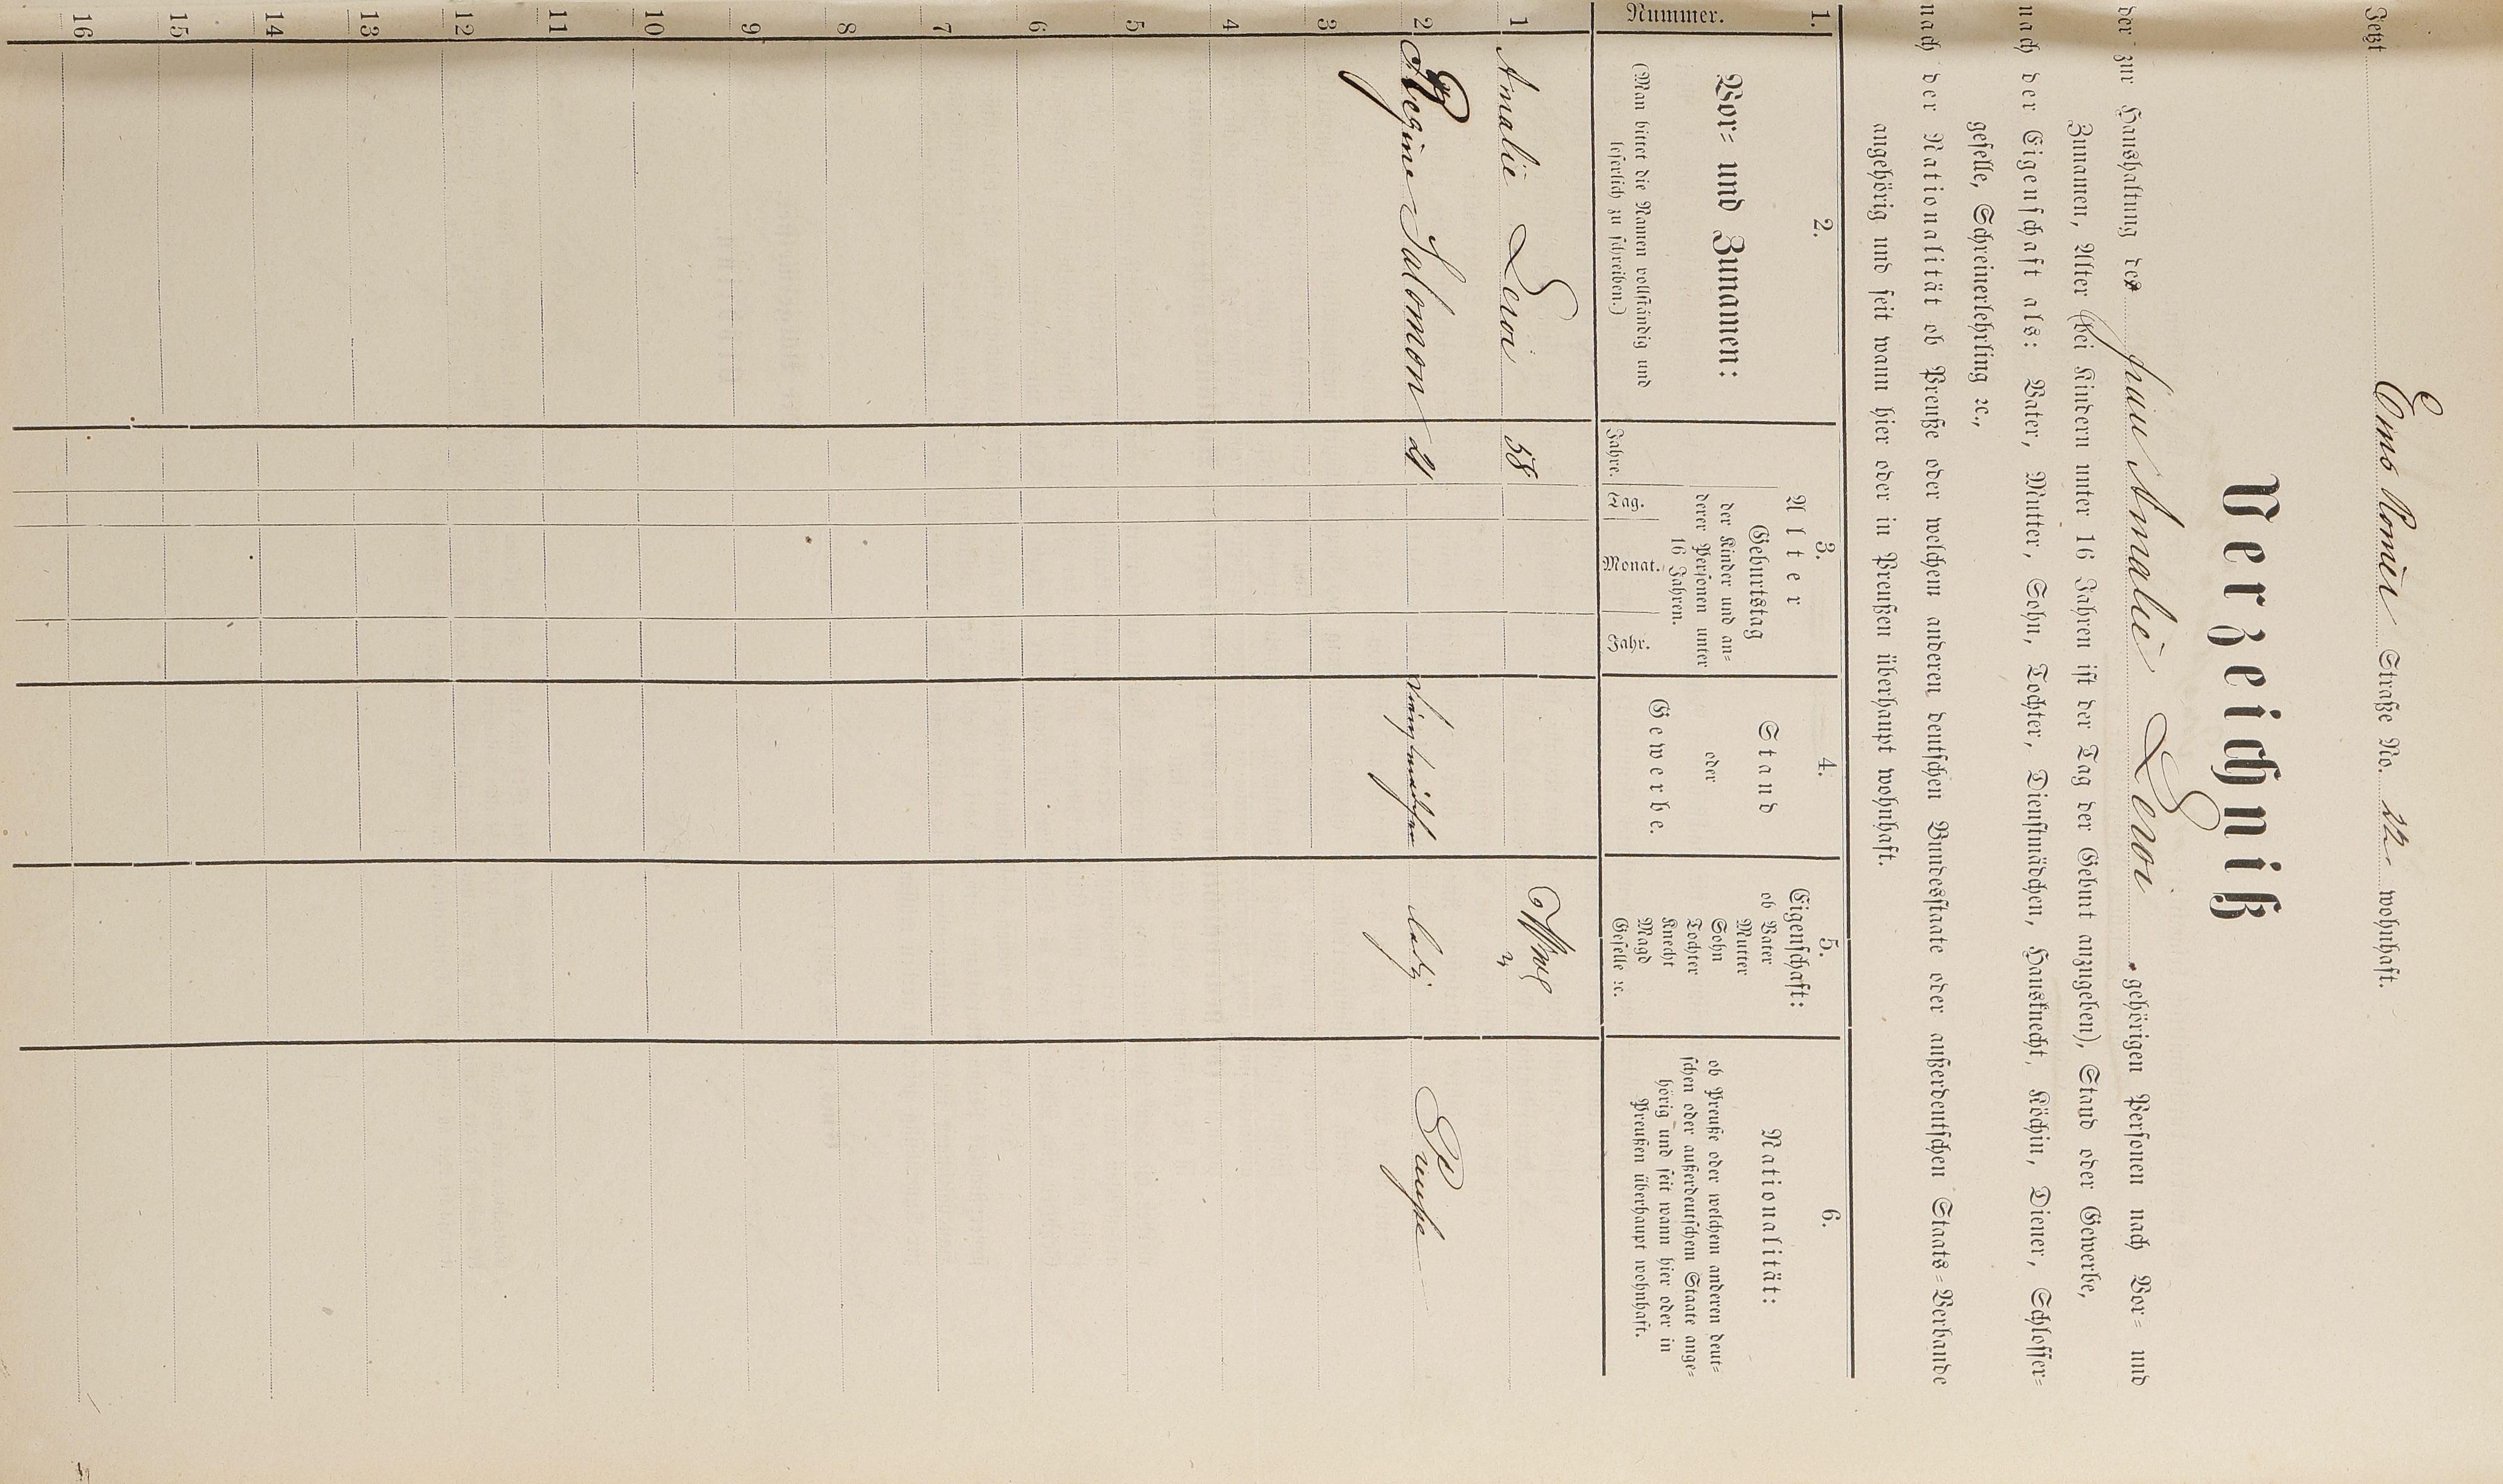 Jetzt Straße No. 22 wohnhaft.
Verzeichniß
der zur Haushaltung des Frau Amalie Levi gehörigen Personen nach Vor- und
Zunamen, Alter (bei Kindern unter 16 Jahren ist der Tag der Geburt anzugeben), Stand oder Gewerbe,
nach der Eigenschaft als: Vater, Mutter, Sohn, Tochter, Dienstmädchen, Hausknecht, Köchin, Diener, Schlosser-
geselle, Schreinerlehrling ꝛc.,
nach der Nationalität ob Preuße oder welchem anderen deutschen Bundesstaate oder außerdeutschen Staats-Verbande
angehörig und seit wann hier oder in Preußen überhaupt wohnhaft.
1.
Nummer.
2.
Vor- und Zunamen:
(Man bittet die Namen vollständig und
leserlich zu schreiben.)
3.
Alter
Geburtstag
der Kinder und an-
derer Personen unter
16 Jahren.
Jahre.
Tag.
Monat.
Jahr.
4.
Stand
oder
Gewerbe.
5.
Eigenschaft:
ob Vater
Mutter
Sohn
Tochter
Knecht
Magd
Geselle ꝛc.
6.
Nationalität:
ob Preuße oder welchem anderen deut-
schen oder außerdeutschem Staate ange-
hörig und seit wann hier oder in
Preußen überhaupt wohnhaft.
1 Amalie Levi 58
2 Regine Salomon 21 ledig Preuße
3
4
5
6
7
8
9
10
11
12
13
14
15
16